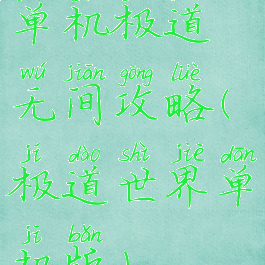 单机极道
wú jiān gōng lüè
无间攻略(
jí dào shì jiè dān
极道世界单
jī bǎn
机版)